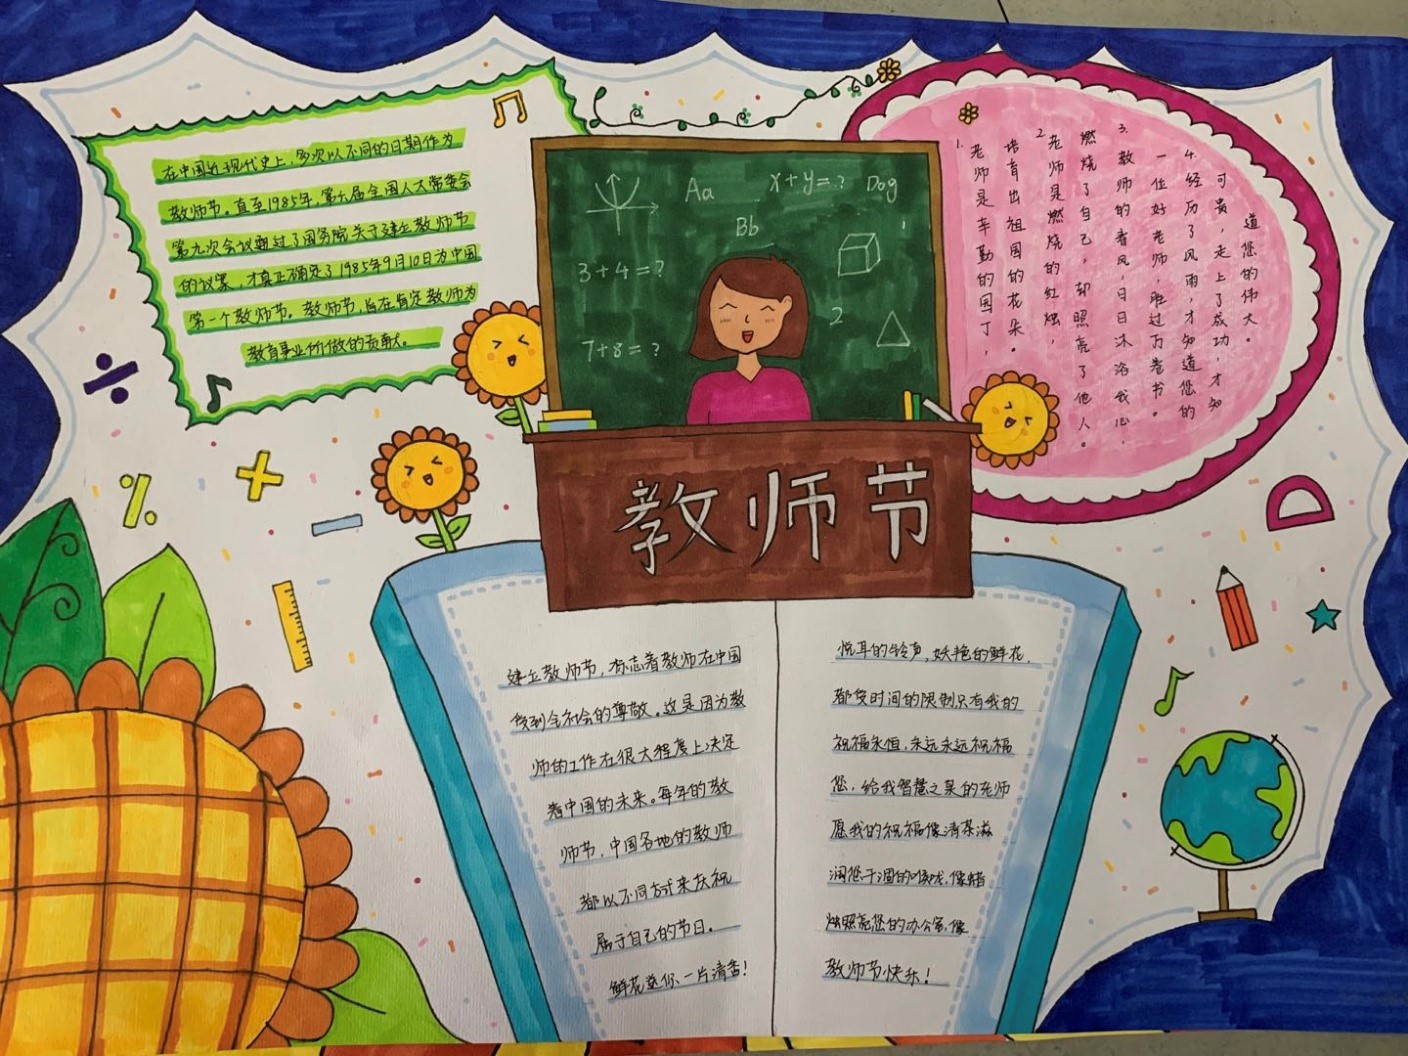 在中国近现代史上，多次以不同的日期作为
教师节。直至1985年，第六届全国人大常委会
第九次会议通过了国务院关于建立教师节
的议案，才真正确定了1985年9月10日为中国
第一个教师节。教师节，旨在肯定教师为
教育事业所做的贡献。
Aa
x+y=?
Dog
Bb
3+4=?
1
2
7+8=?
教师节
1.老师是辛勤的园丁，
培育出祖国的花朵。
2.老师是燃烧的红烛，
燃烧了自己，却照亮了他人。
3.教师的春风，日日沐浴我心。
一位好老师，胜过万卷书。
4.经历了风雨，才知道您的
可贵，走上了成功，才知
道您的伟大。
建立教师节，标志着教师在中国
受到全社会的尊敬。这是因为教
师的工作在很大程度上决定
着中国的未来。每年的教
师节，中国各地的教师
都以不同方式来庆祝
属于自己的节日。
鲜花送你一片清香！
悦耳的铃声，妖艳的鲜花，
都受时间的限制只有我的
祝福永恒，永远永远祝福
您，给我智慧之泉的老师
愿我的祝福像清茶滋
润您干涸的喉咙，像蜡
烛照亮您的办公室，像
教师节快乐！